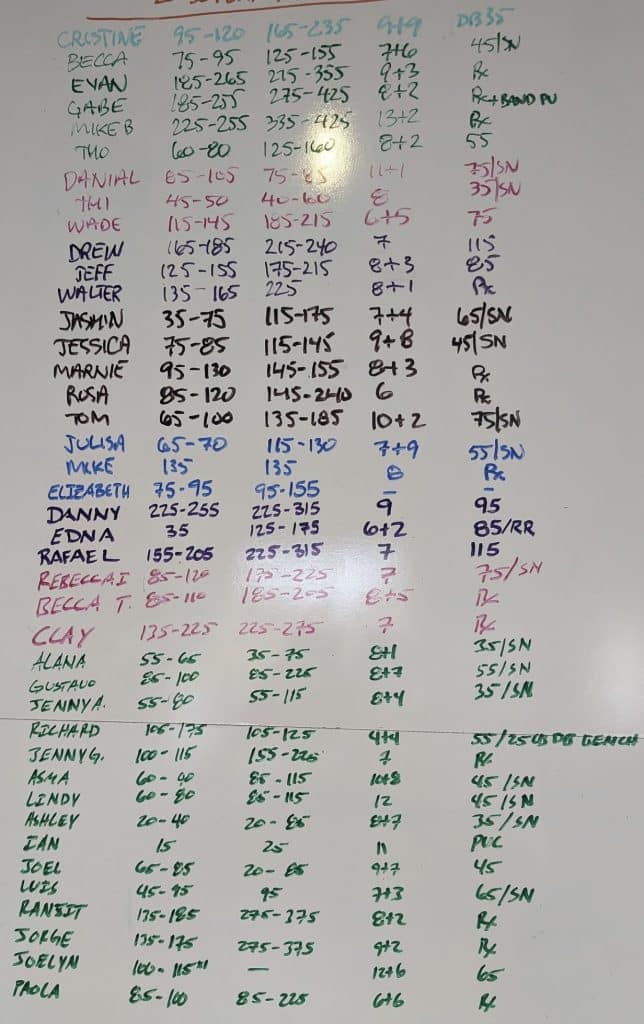 CRISTINE 95-120 165-235 9+9 DB35
BECCA 75-95 125-155 7+6 45/SN
EVAN 185-265 275-355 9+3 Rx
GABE 185-255 275-425 8+2 Rx+BAND PU
MIKE B 225-255 335-425 13+2 Rx
THO 60-80 125-160 8+2 55
DANIAL 85-105 75-85 11+1 75/SN
THI 45-50 40-60 8 35/SN
WADE 115-145 185-215 6+5 75
DREW 165-185 215-240 7 115
JEFF 125-155 175-215 8+3 85
WALTER 135-165 225 8+1 Rx
JASMIN 35-75 115-175 7+4 65/SN
JESSICA 75-85 115-145 9+8 45/SN
MARNIE 95-130 145-155 8+3 Rx
ROSA 85-120 145-240 6 Rx
TOM 65-100 135-185 10+2 75/SN
JULISA 65-70 115-130 7+9 55/SN
MIKE 135 135 Rx
ELIZABETH 75-95 95-155 - -
DANNY 225-255 225-315 9 95
EDNA 35 125-175 6+2 85/RR
RAFAEL 155-205 225-315 7 115
REBECCA I 85-120 175-225 7 75/SN
BECCA T. 85-110 185-205 8+5 Rx
CLAY 135-225 225-275 7 Rx
ALANA 55-65 35-75 8+1 35/SN
GUSTAVO 85-100 85-225 8+7 55/SN
JENNY A. 55-80 55-115 8+4 35/SN
RICHARD 105-175 105-125 4+4 55/25LB DB BENCH
JENNY G. 100-115 155-225 7 Rx
ASMA 60-90 85-115 10+8 45/SN
LINDY 60-80 85-115 12 45/SN
ASHLEY 20-40 20-85 8+7 35/SN
IAN 15 25 11 PVC
JOEL 65-85 20-85 9+7 45
LUIS 45-95 95 7+3 65/SN
RANJIT 135-185 275-375 8+2 Rx
JORGE 135-175 275-375 9+2 Rx
JOELYN 100-115x1 — 12+6 65
PAOLA 85-100 85-225 6+6 Rx